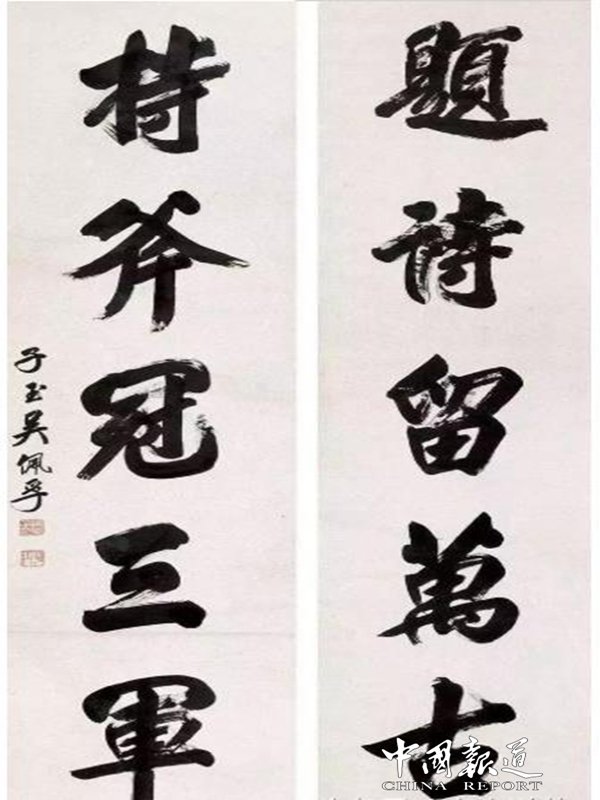 題詩留萬古
持斧冠三軍
子玉吴佩孚
中國報道
CHINA REPORT